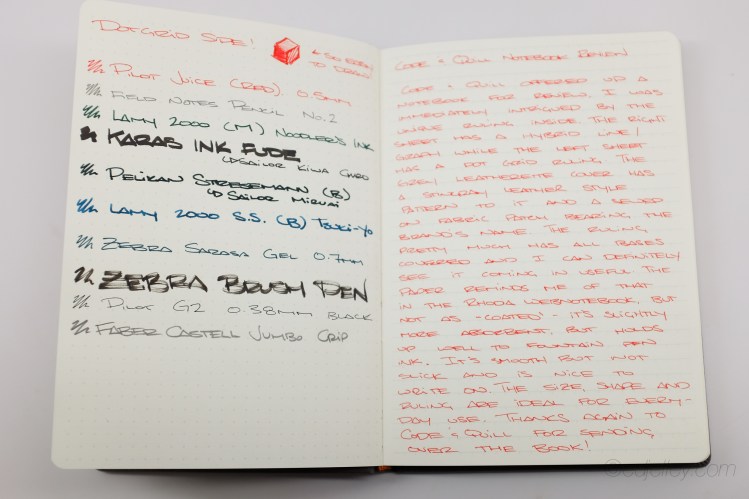 DOT GRID SIDE!
← SO EASY
TO DRAW!
PILOT JUICE (RED) 0.5MM
FIELD NOTES PENCIL NO.2
LAMY 2000 (M) NOODLER'S INK
KARAS INK FUDE
↳ SAILOR KIWA GURO
PELIKAN STRESEMANN (B)
↳ SAILOR MIRUAI
LAMY 2000 S.S. (B) TSUKI-YO
ZEBRA SARASA GEL 0.7MM
ZEBRA BRUSH PEN
PILOT G2 0.38MM BLACK
FABER CASTELL JUMBO GRIP
CODE & QUILL NOTEBOOK REVIEW
CODE & QUILL OFFERED UP A
NOTEBOOK FOR REVIEW. I WAS
IMMEDIATELY INTRIGUED BY THE
UNIQUE RULING INSIDE. THE RIGHT
SHEET HAS A HYBRID LINE/
GRAPH WHILE THE LEFT SHEET
HAS A DOT GRID RULING. THE
GREY LEATHERETTE COVER HAS
A STINGRAY LEATHER STYLE
PATTERN TO IT AND A SEWED
ON FABRIC PATCH BEARING THE
BRAND'S NAME. THE RULING
PRETTY MUCH HAS ALL BASES
COVERED AND I CAN DEFINITELY
SEE IT COMING IN USEFUL. THE
PAPER REMINDS ME OF THAT
IN THE RHODIA WEBNOTEBOOK, BUT
NOT AS -COATED- IT'S SLIGHTLY
MORE ABSORBENT, BUT HOLDS
UP WELL TO FOUNTAIN PEN
INK. IT'S SMOOTH BUT NOT
SLICK AND IS NICE TO
WRITE ON. THE SIZE, SHAPE AND
RULING ARE IDEAL FOR EVERY-
DAY USE. THANKS AGAIN TO
CODE & QUILL FOR SENDING
OVER THE BOOK!
©edjelley.com